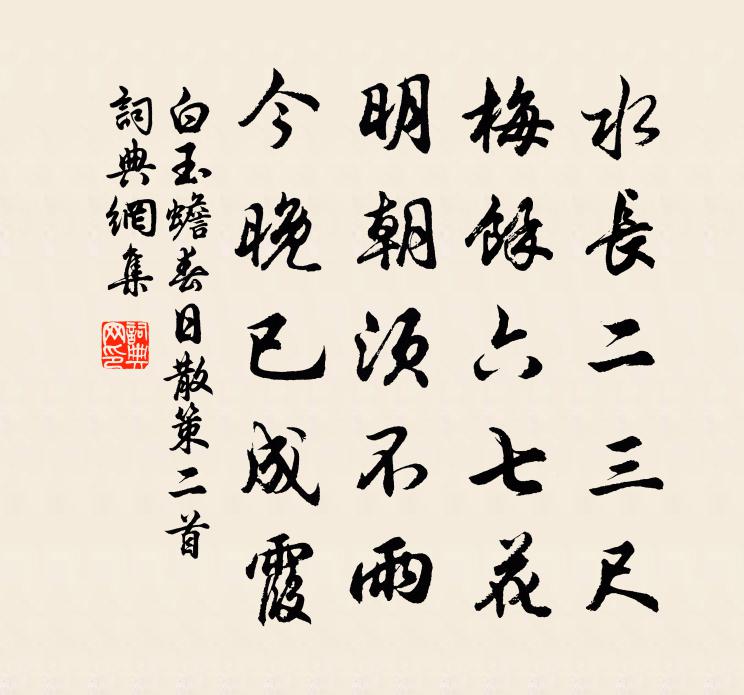 水長二三尺
梅餘六七花
明朝須不雨
今晚已成霞
白玉蟾春日散策二首
詞典網集
詞典網印